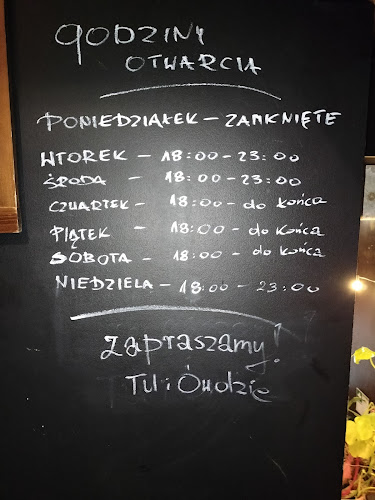 GODZINY
OTWARCIA
PONIEDZIAŁEK – ZAMKNIĘTE
WTOREK – 18:00 – 23:00
ŚRODA – 18:00 – 23:00
CZWARTEK – 18:00 – do końca
PIĄTEK – 18:00 – do końca
SOBOTA – 18:00 – do końca
NIEDZIELA – 18:00 – 23:00
Zapraszamy!
TU i